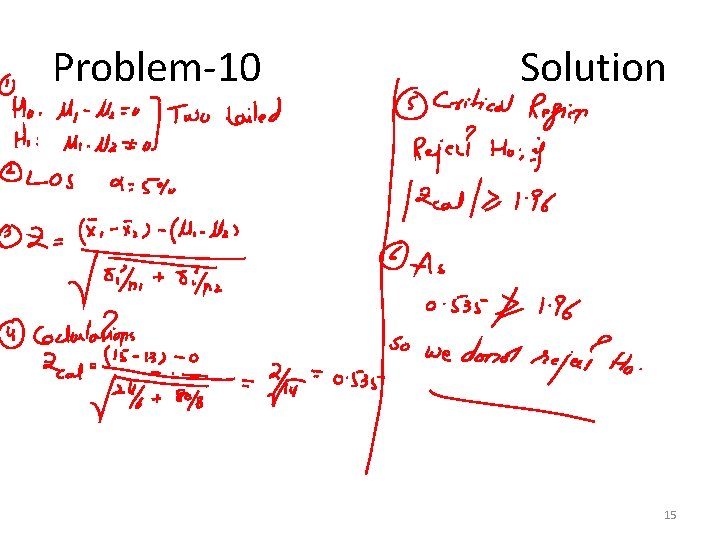 Problem-10
Solution
① H₀: μ₁ - μ₂ = 0
H₁: μ₁ - μ₂ ≠ 0
Two tailed
② LOS α = 5%
③ Z = (x̄₁ - x̄₂) - (μ₁ - μ₂)
√(σ₁²/n₁ + σ₂²/n₂)
④ Calculations
Zcal = (15 - 13) - 0
√(24/6 + 80/8) = 2/√14 = 0.535
⑤ Critical Region
Reject H₀; if
|Zcal| ≥ 1.96
⑥ As
0.535 ≱ 1.96
So we donot reject H₀.
15